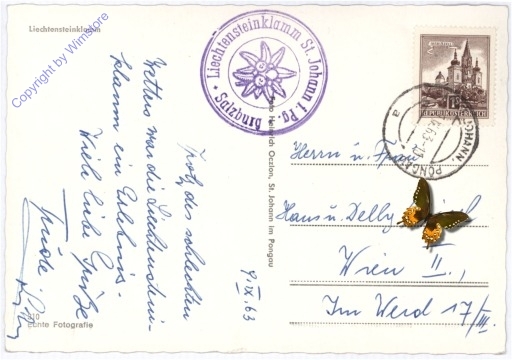 Liechtensteinklamm
Copyright by Wimstore
• Liechtensteinklamm St. Johann i. Pg. • Salzburg
9.IX.63
Trotz des schlechten
Wetters war die Liechtenstein-
klamm ein Erlebnis.
Viele liebe Grüße
Trude
310
Echte Fotografie
Foto Heinrich Oczlon, St. Johann im Pongau
REPUBLIK ÖSTERREICH
JOHANN
PONGAU
.63-
a
Herrn u. Frau
Hans u. Delly
Wien II.,
Im Werd 17/III.